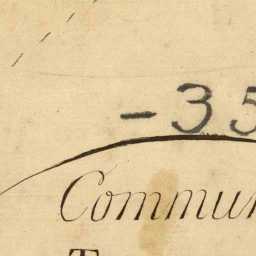 -35
Commun